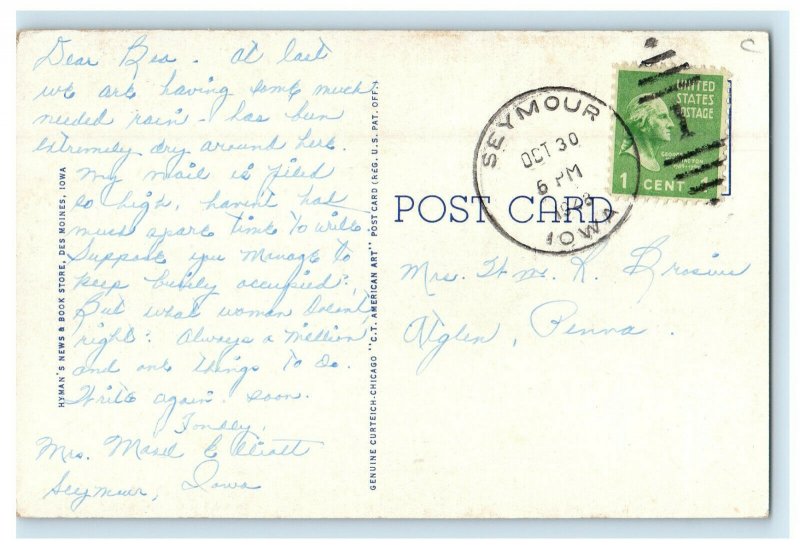 Dear Bea - at last
we are having some much
needed rain - has been
extremely dry around here.
My mail is piled
so high, havent had
much spare time to write.
Suppose you manage to
keep busily occupied.
But what woman doesnt,
right? Always a million
and one things to do.
Write again soon.
Fondly,
Mrs. Elliott
Seymour, Iowa
HYMAN'S NEWS & BOOK STORE, DES MOINES, IOWA
GENUINE CURTEICH-CHICAGO "C.T. AMERICAN ART" POST CARD (REG. U.S. PAT. OFF.)
POST CARD
SEYMOUR
OCT 30
6 PM
IOWA
UNITED
STATES
POSTAGE
1 CENT 1
Mrs. Wm. K. Brosius
Atglen, Penna.
C